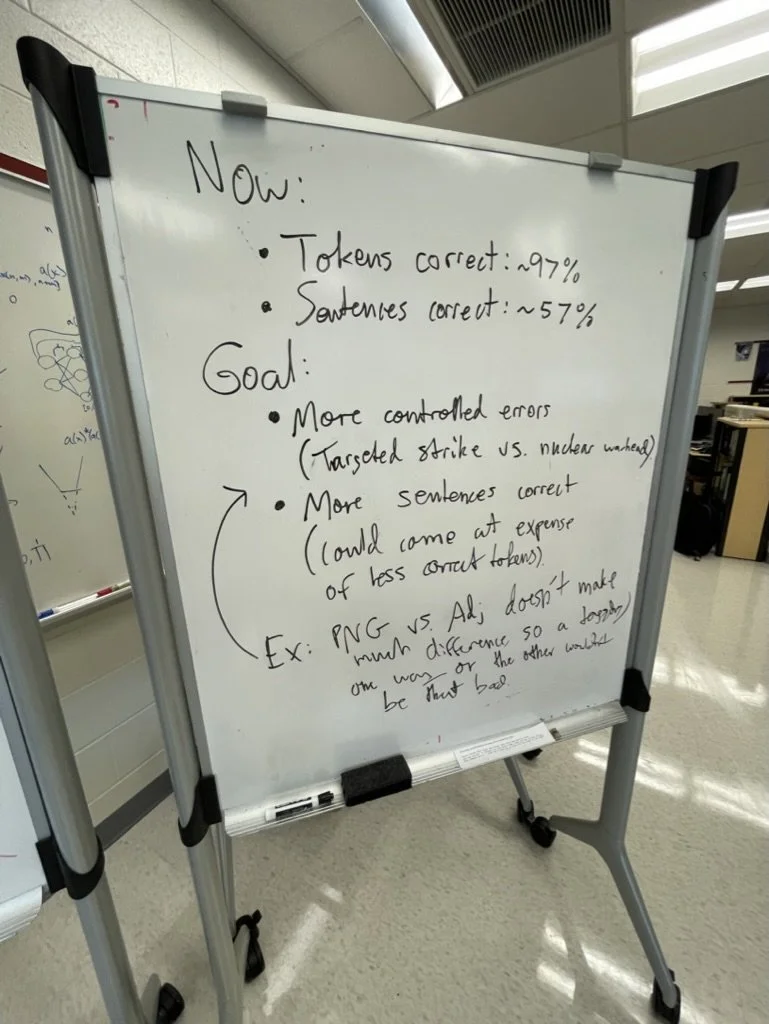 Now:
• Tokens correct: ~97%
• Sentences correct: ~57%
Goal:
• More controlled errors
(Targeted strike vs. nuclear warhead)
• More sentences correct
(Could come at expense
of less correct tokens).
Ex: PNG vs. Adj doesn't make
much difference so a tagging
one way or the other wouldn't
be that bad.
a(x)
n
0